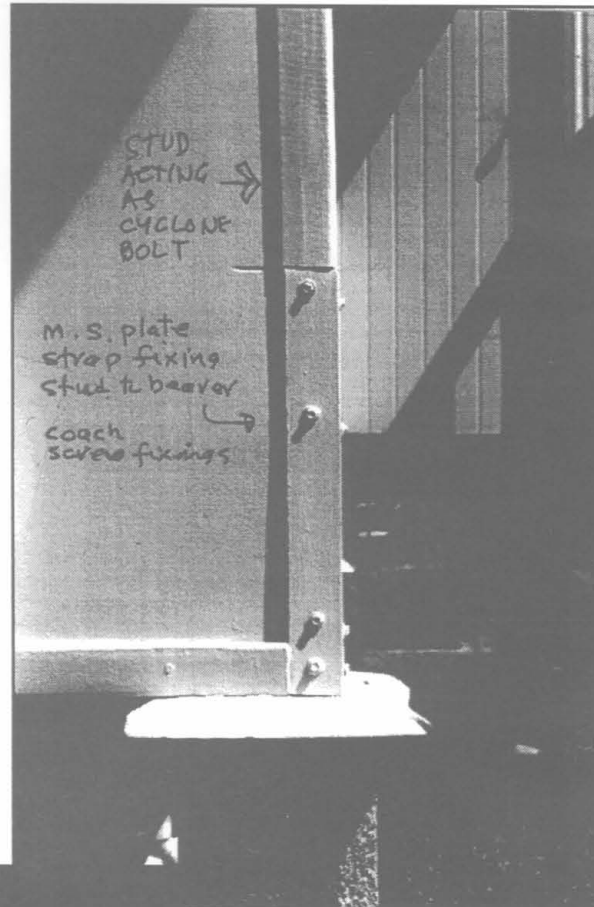 STUD
ACTING
AS
CYCLONE
BOLT
m.s. plate
strap fixing
stud to bearer
coach
screw fixings